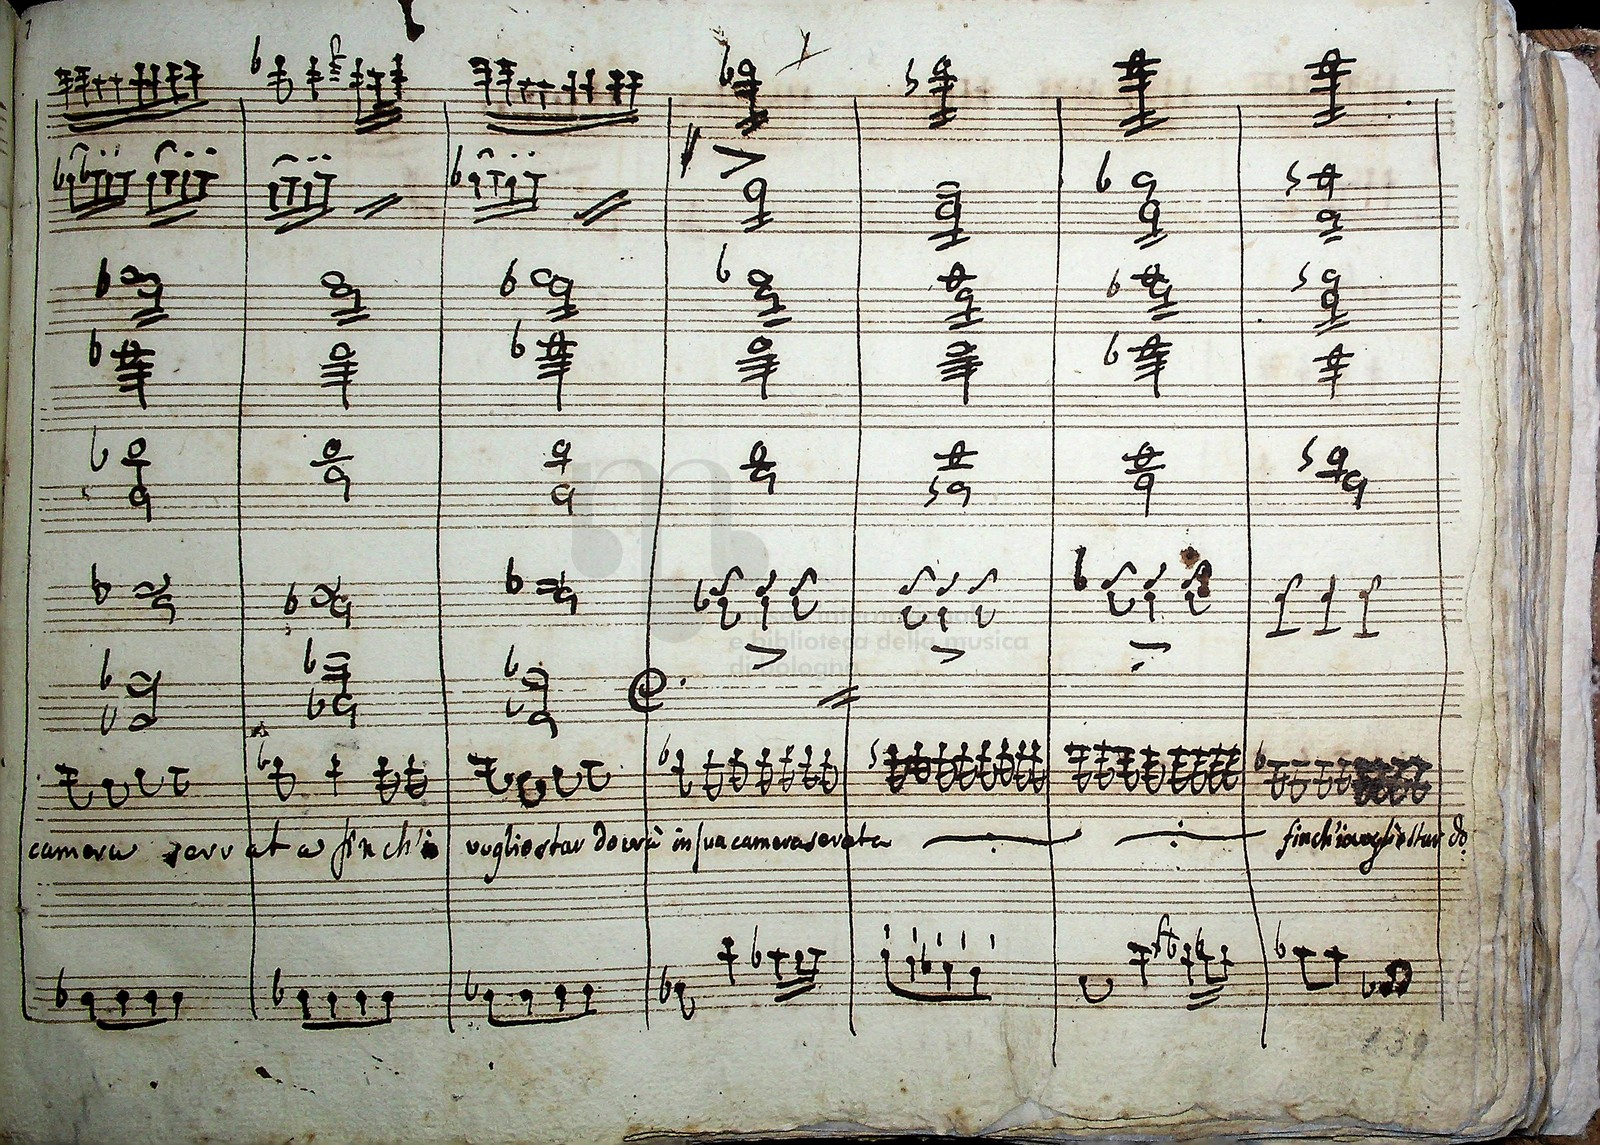 camera serrata finch'io voglio star dovrà in sua camera serata finch'io voglio star do:
e biblioteca della musica
di bologna
139